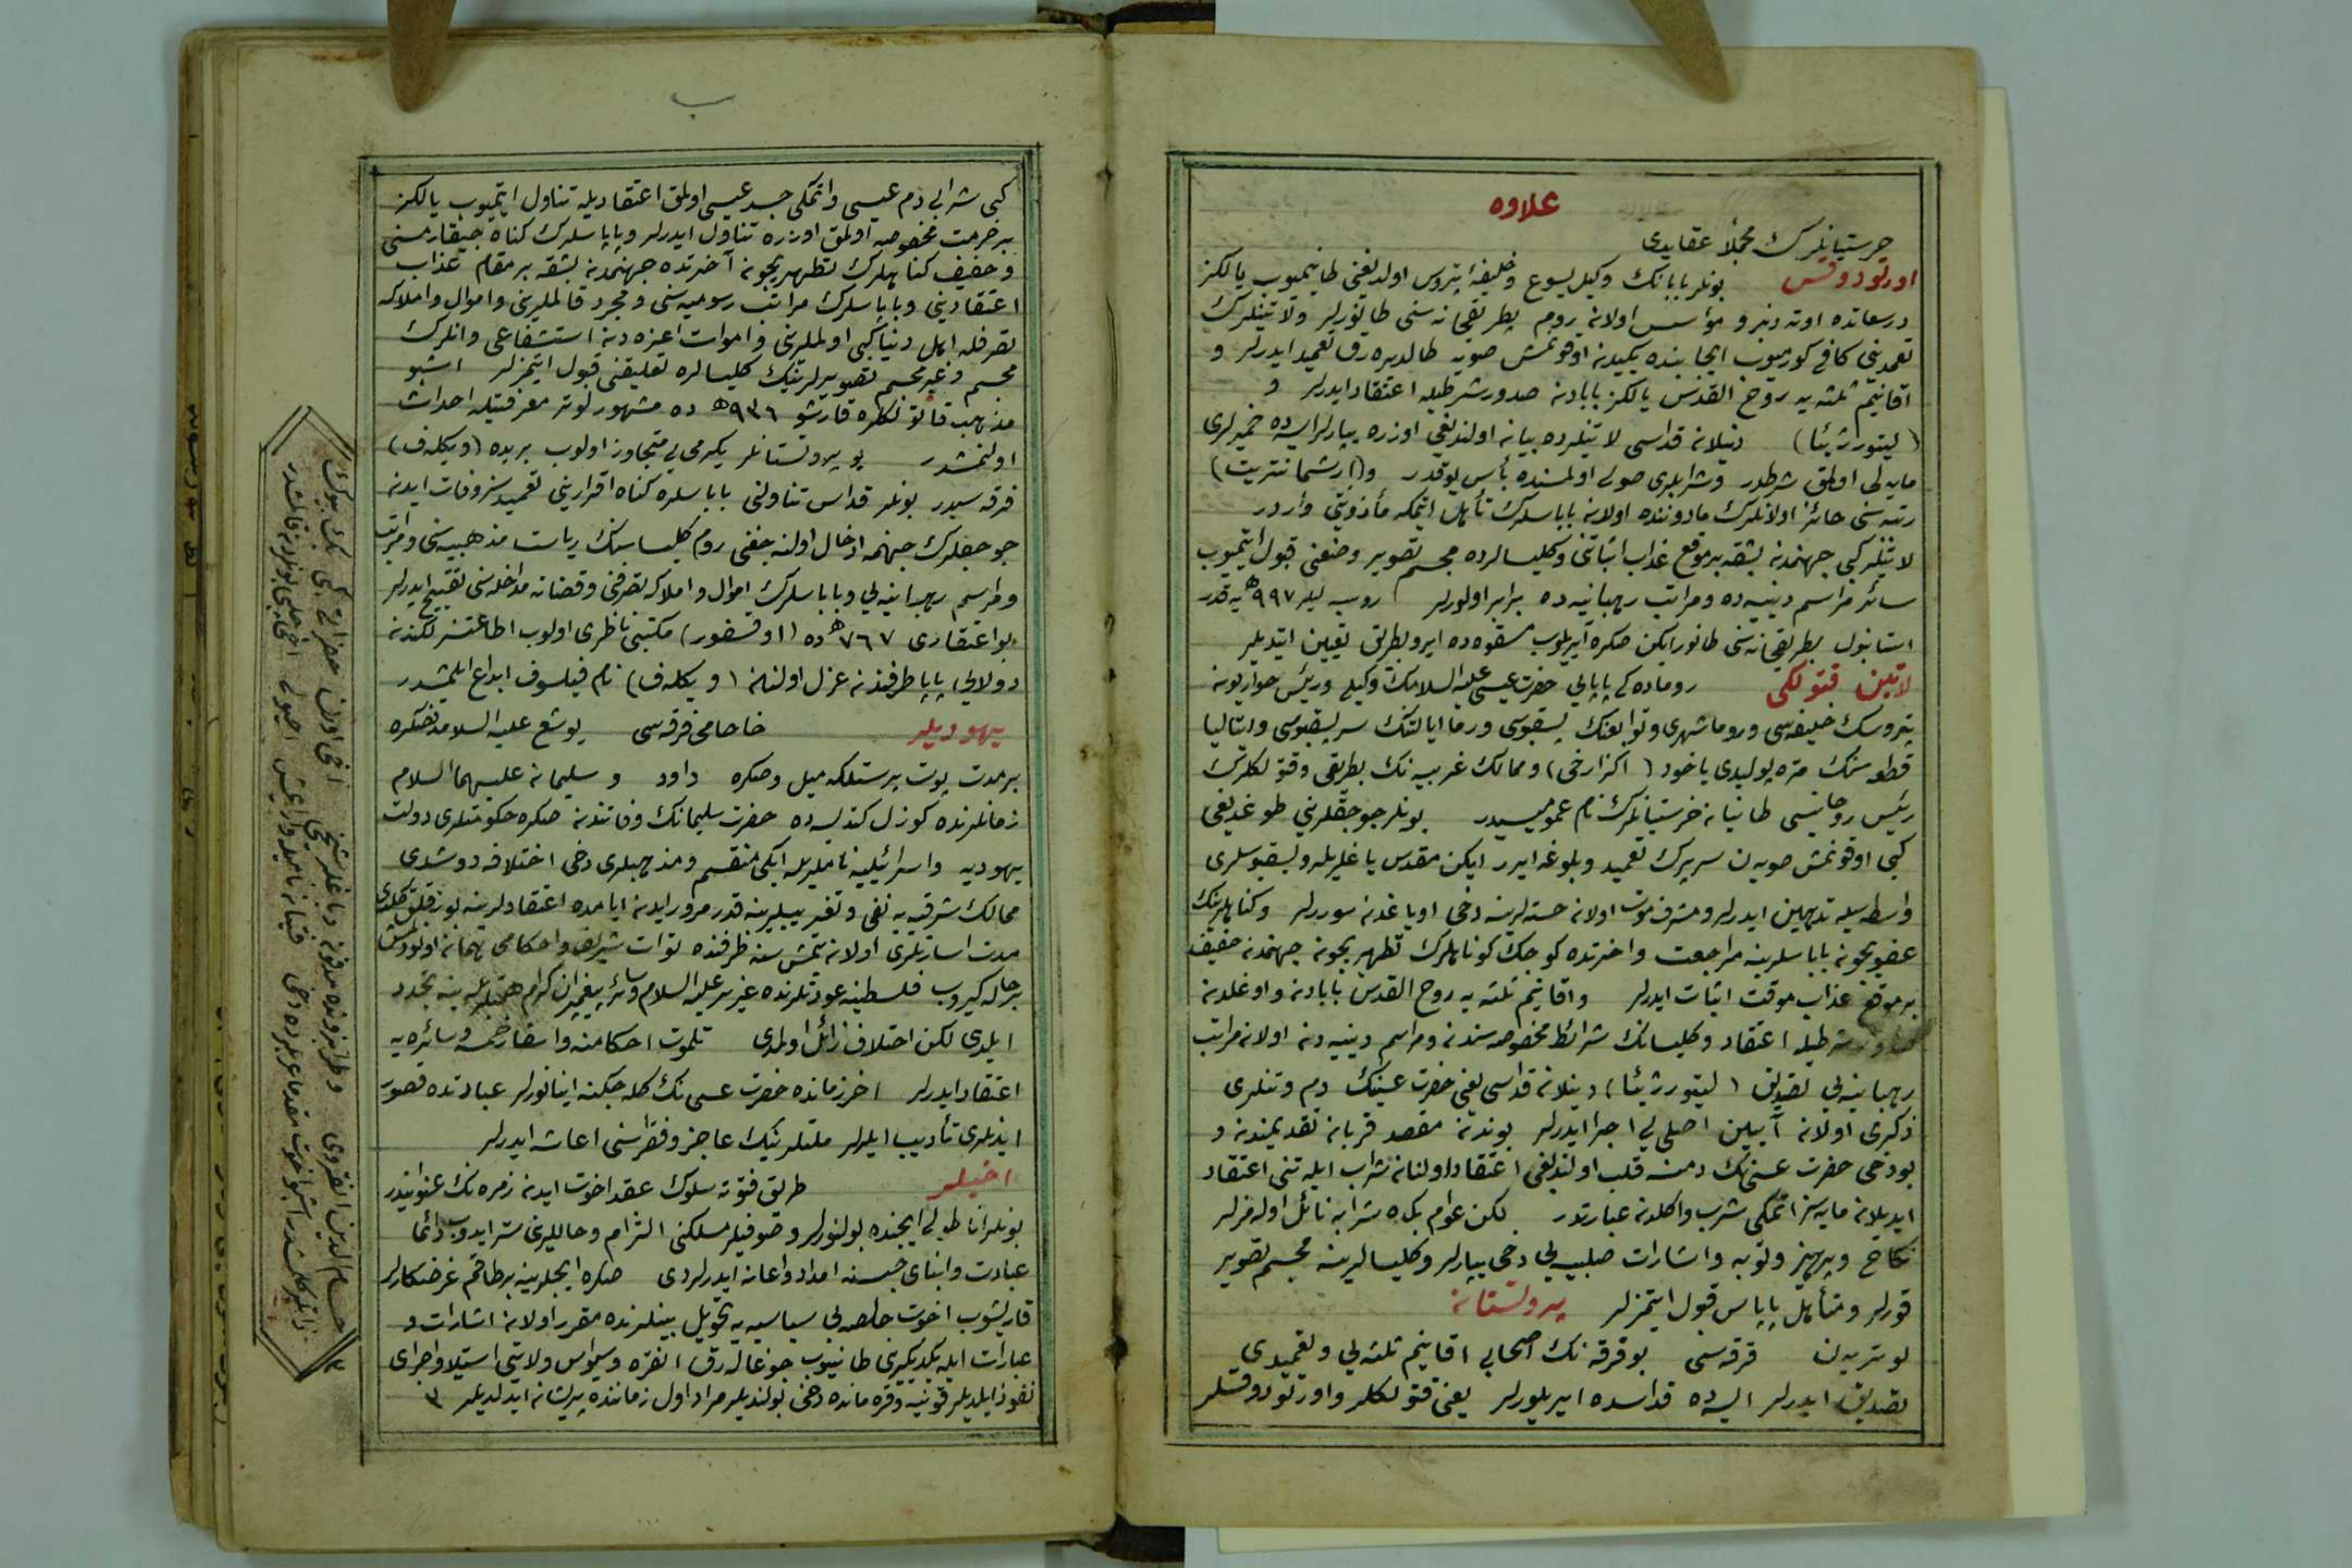 علاوه
خرستیانلرك مجملاً عقایدی
اورتودوقس بونلر بابانك وكیل یسوع وخلیفهٔ پتروس اولدیغنی طانیمیوب یالكز
درسعادتده اوته دنبرو مؤسس اولان روم پطریقخانه سنی طانورلر ولاتینلرك
تعمیدینی كافی كورمیوب ایجابنده یكیدن اوقونمش صویه طالدیره رق تعمید ایدرلر و
اقانیم ثلثه یه روح القدس یالكز بابادن صدور شرطیله اعتقاد ایدرلر و
(لیتورژیئا) دنیلان قداسی لاتینلرده بیان اولندیغی اوزره یپارلر ایسه ده خمیرلری
مایه لی اولمق شرطدر وشرابلری صولی اولمسنده بأس یوقدر و(ارشمانتریت)
رتبه سنی حائز اولانلرك مادوننده اولان باباسلرك تأهل ایتمكه مأذونیتی واردر
لاتینلر كبی جهنمدن بشقه بر موقع عذاب اثباتنی وكلیسالرده مجسم تصویر وضعنی قبول ایتمیوب
سائر مراسم دینیه ده ومراتب رهبانیه ده برابر اولورلر روسیه لیلر ٩٩٧ه یه قدر
استانبول بطریقخانه سنی طانورایكن صكره آیریلوب مسقوه ده ایرو بطریق تعیین ایتدیلر
لاتین قتولكی روماده كی پاپایی حضرت عیسی علیه السلامك وكیلی ورئیس حواریون
پتروسك خلیفه سی وروما شهری وتوابعنك پسقپوسی ورما ایالتنك سر پسقپوسی وایتالیا
قطعه سنك متره پولیدی یاخود (اكزارخی) وممالك غربیه نك بطریقی وقتولكلرك
رئیس روحانیسی طانیان خرستیانلرك نام عمومیسیدر بونلر جوجقلرینی طوغدیغی
كبی اوقونمش صویه ن سرپه رك تعمید وبلوغه ایرر ایكن مقدس یاغلریله وپسقپوسلری
واسطه سیله تدهین ایدرلر ومشرف موت اولان خسته لرینه دخی اویاغدن سوررلر وكناهلرینك
عفویجون باباسلرینه مراجعت واخرتده كوجك كوناهلرك تطهیریجون جهنمدن خفیف
بر موقع عذاب موقت اثبات ایدرلر واقانیم ثلثه یه روح القدس بابادن واوغلدن
صدور شرطیله اعتقاد وكلیسانك شرائط مخصوصه سندن ومراسم دینیه دن اولان مراتب
رهبانیه یی تصدیق (لیتورژیئا) دینلان قداسی یعنی حضرت عیسینك دم وتنلری
ذكری اولان آیین اصلی یی اجرا ایدرلر بوندن مقصد قربان تقدیمندن و
بودخی حضرت عیسی نك دمنه قلب اولندیغی اعتقاد اولنان شراب ایله تنی اعتقاد
ایدیلان مایه سز اتمكی شرب واكلدن عبارتدر لكن عوام بك ده شرابه نائل اوله مزلر
نكاح وپرهیز وتوبه واشارات صلیبیه یی دخی یپارلر وكلیسالرینه مجسم تصویر
قورلر ومتأهل پاپاس قبول ایتمزلر پروتستان
لوتریه ن فرقه سی بو فرقه نك اصحابی اقانیم ثلثه یی وتعمیدی
تصدیق ایدرلر ایسه ده قداسده ایریلورلر یعنی قتولكلر واورتودوقسلر
كبی شرابی دم عیسی واتمكی جسد عیسی اولمق اعتقادیله تناول ایتمیوب یالكز
بر خرمت مخصوصه اولمق اوزره تناول ایدرلر وپاپاسلرك كناه جیقارمسنی
وخفیف كناهلرك تطهیریجون آخرتده جهنمدن بشقه بر مقام عذاب
اعتقادینی وباباسلرك مراتب رسومیه سنی ومجرد قالملرینی واموال واملاكه
تصرفله اهل دنیا كبی اولملرینی واموات اعزه دن استشفاعی وانلرك
مجسم وغیر مجسم تصویرلرینك كلیسالره تعلیقنی قبول ایتمزلر اشبو
مذهب قاتولكلره قارشو ٩٣٦ه ده مشهور لوتر معرفتیله احداث
اولنمشدر بو پروتستانلر یكرمی یی متجاوز اولوب بریده (ویكله ف)
فرقه سیدر بونلر قداس تناولنی باباسلره كناه اقرارینی تعمیدسز وفات ایدن
جوجقلرك جهنمه ادخال اولنه جغنی روم كلیساسنك ریاست مذهبیه سنی ومراتب
ومراسم رهبانیه یی وباباسلرك اموال واملاكه تصرفنی وقضاته مداخله سنی تقبیح ایدرلر
بو اعتقادی ٧٦٧ه ده (اوقسفور) مكتبی ناظری اولوب اطاعتسزلكندن
دولایی پاپا طرفندن عزل اولنان (ویكله ف) نام فیلسوف ابداع ایلمشدر
یهودیلر خاخامی فرقه سی یوشع علیه السلامدنصكره
بر مدت پوت پرستلكه میل وصكره داود و سلیمان علیهما السلام
زمانلرنده كوزل كندیسه ده حضرت سلیمانك وفاتندن صكره حكومتلری دولت
یهودیه واسرائیلیه ناملریله ایكی منقسم ومذهبلری دخی اختلافه دوشدی
ممالك شرقیه یه نفی وتغریبلرینه قدر مرور ایدن ایامده اعتقادلرینه بوزقلق كلدی
مدت اسارتلری اولان یتمش سنه ظرفنده تورات شریف واحكامی همان اونودلمش
بر حاله كیروب فلسطینه عودتلرنده عزیر علیه السلام وسائر پیغمبران كرام همتلریله ینه تجدد
ایلدی لكن اختلاف زائل اولمدی تلموت احكامنه واسفار خمسه وسائره یه
اعتقاد ایدرلر اخر زمانده حضرت عیسی نك كله جكنه اینانورلر عبادتده قصور
ایدنلری تأدیب ایلرلر ملتلرینك عاجز وفقراسنی اعاشه ایدرلر
اخیلر طریق فتوته سلوك عقد اخوت ایدن زمره نك عنوانیدر
بونلر اناطولی ایجنده بولنورلر وصوفیلر مسلكنی التزام وحاللرینی ستر ایدوب دائما
عبادت وابنای جنسنه امداد واعانه ایدرلردی صكره ایجلرینه بر طاقم غرضكارلر
قاریشوب اخوت خالصه یی سیاسیه یه تحویل بینلرنده مقرر اولان اشارات و
عبارات ایله یكدیكرینی طانییوب جوغاله رق انقره وسیواس ولایتنی استیلا واجرای
نفوذ ایلدیلر قونیه وقره مانده دخی بولندیلر مراد اول زماننده پریشان ایدلدیلر ٣